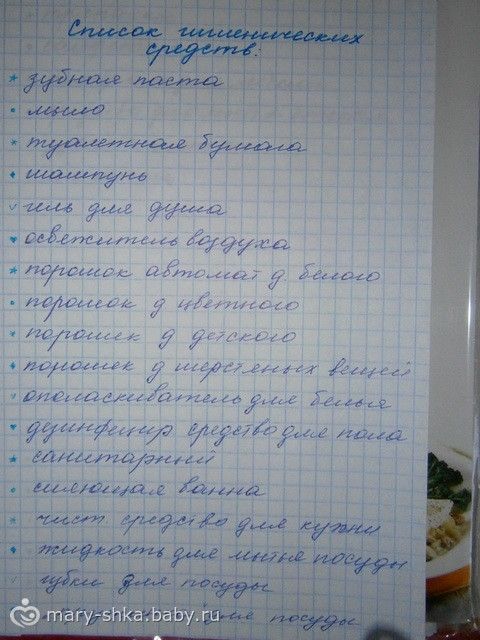 Список гигиенических
средств:
* зубная паста
• мыло
* туалетная бумага
♦ шампунь
✓ гель для душа
♥ освежитель воздуха
* порошок автомат д. белого
• порошок д цветного
* порошек д детского
♦ порошек д шерстяных вещей
✓ ополаскиватель для белья
♥ дезинфецир средство для пола
* санитарный
• сияющая ванна
* чист. средство для кухни
♦ жидкость для мытья посуды
✓ губки для посуды
посуды
mary-shka.baby.ru